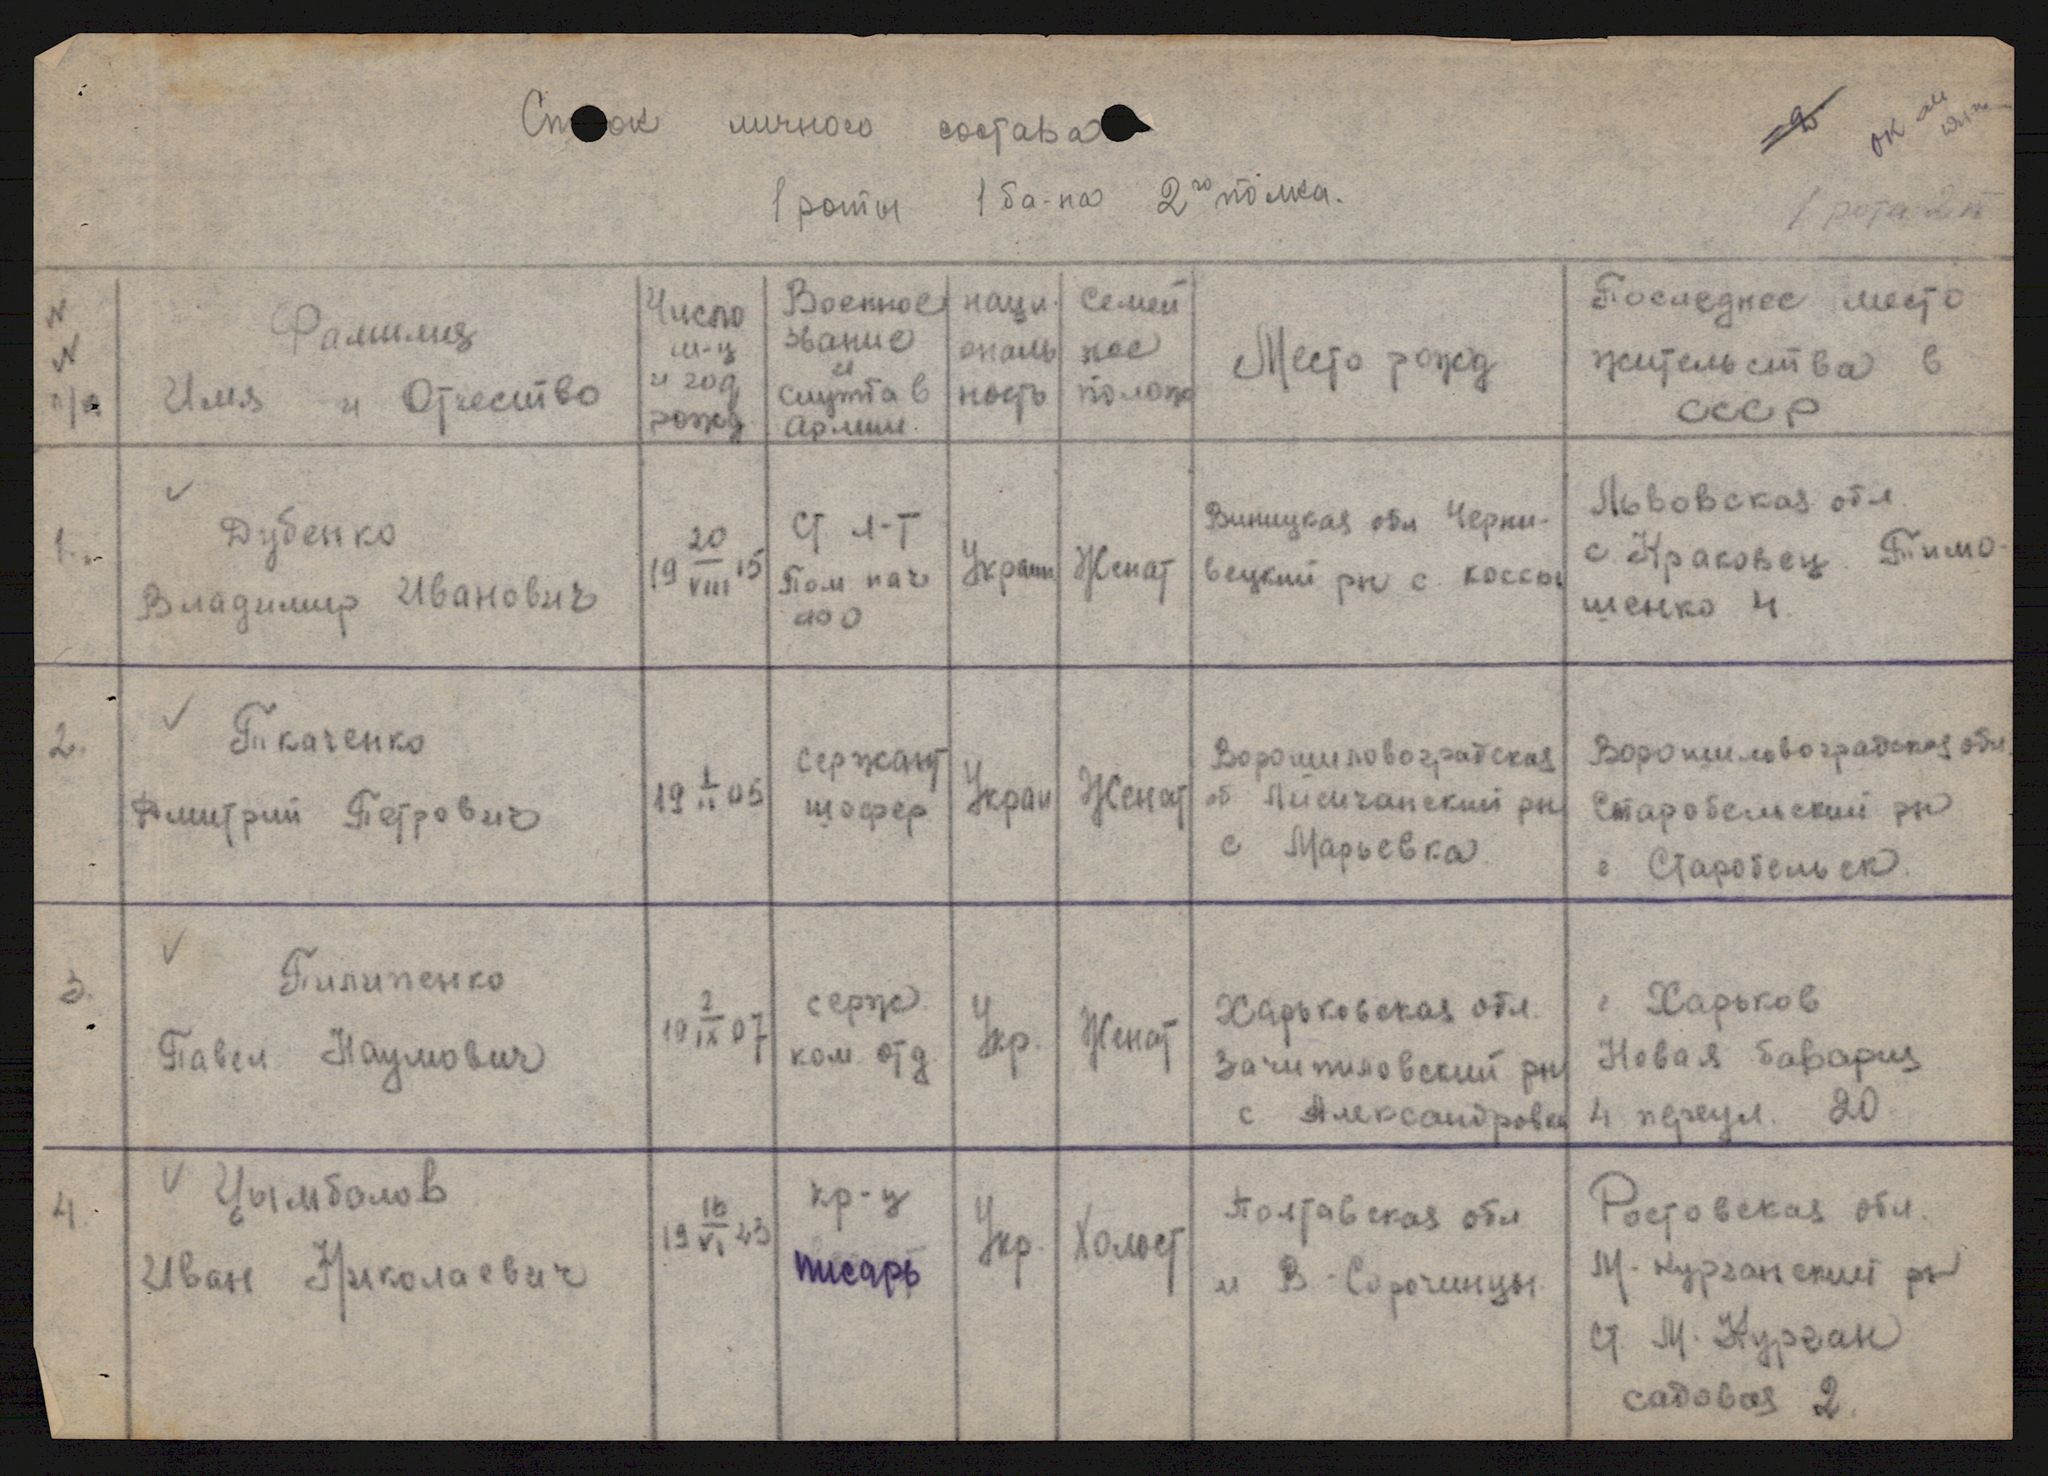 Список личного состава
1 роты 1 ба-на 2го полка.
1 рота 2 п
N N п/п
Фамилия
Имя и Отчество
Число
м-ц
и год
рожд
Военное
звание
и
служба в
Армии.
наци-
ональ
ность
Семей
ное
полож
Место рожд
Последнее место
жительства в
СССР
1.
Дубенко
Владимир Иванович
19 20/VIII 15
Ст л-т
Пом нач
Украин
Женат
Виницкая обл Черни-
вецкий рн с. Коссы
Львовская обл.
с. Краковец. Тимо-
шенко 4.
2.
Ткаченко
Дмитрий Петрович
19 1/II 05
сержант
шофер
Украи
Женат
Ворошиловоградская
об Лисичанский рн
с Марьевка
Ворошиловоградская обл
Старобельский рн
г Старобельск.
3.
Пилипенко
Павел Наумович
19 2/IX 07
серж.
ком. отд.
Укр.
Женат
Харьковская обл.
Зачепиловский рн
с Александровка
г Харьков
Новая бавария
4 переул. 20
4.
Цымболов
Иван Николаевич
19 16/VI 23
кр-ц
писарь
Укр.
Холост
Полтавская обл
м В-Сорочинцы.
Ростовская обл.
М-курганский рн
ст. М-Курган
садовая 2.